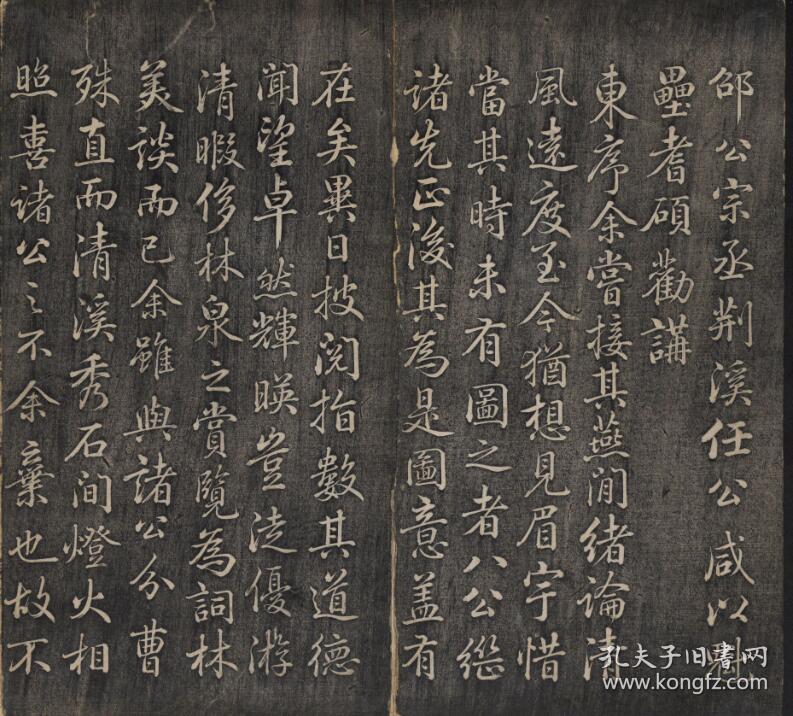 邵公宗丞荆溪任公咸以魁
壘耆碩勸講
東序余嘗接其燕閒緒論清
風遠度至今猶想見眉宇惜
當其時未有圖之者八公繼
諸先正後其為是圖意盖有
在矣異日披閱指數其道德
聞望卓然輝暎豈徒優游
清暇侈林泉之賞覽為詞林
美談而已余雖與諸公分曹
殊直而清溪秀石間燈火相
照喜諸公之不余棄也故不
孔夫子旧书网
www.kongfz.com